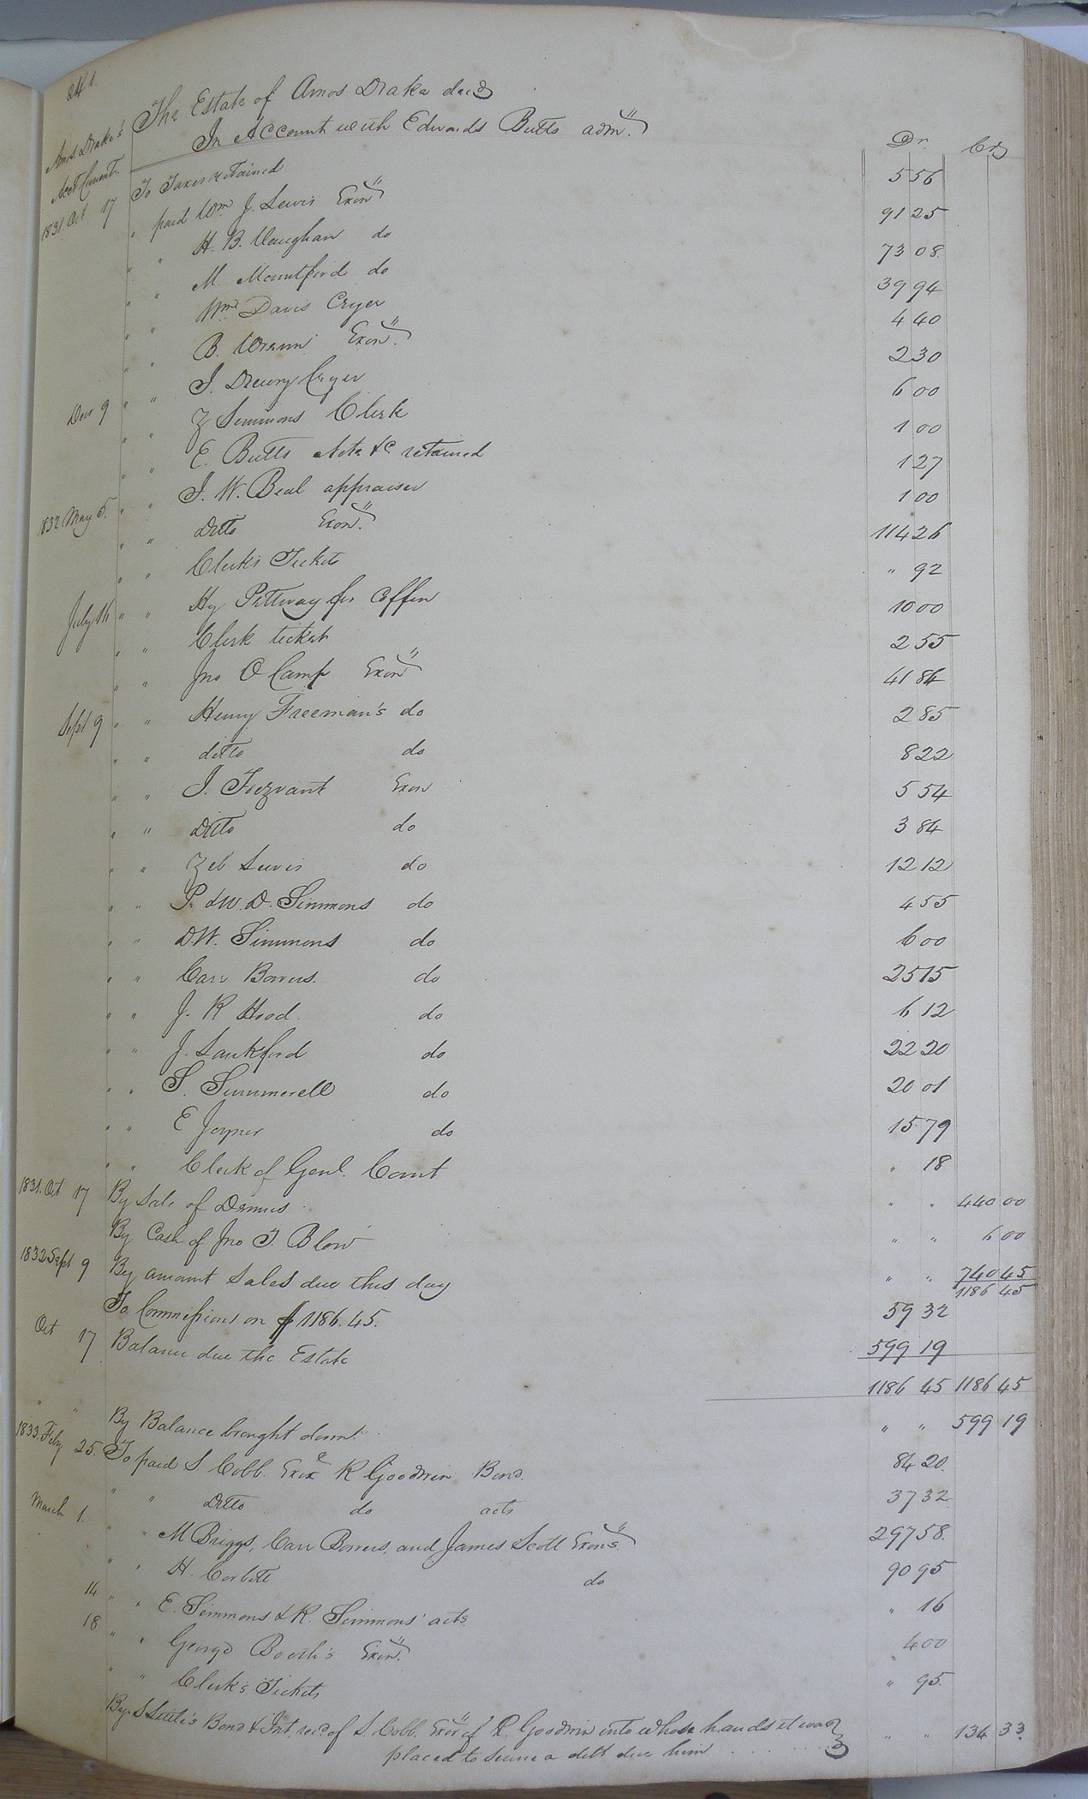 241.
Amos Drake's
Acct Current
The Estate of Amos Drake decd
In Account with Edwards Butts adm.r Dr. Crs
1831 Oct 17 To Taxes retained 5 56
" paid Wm J. Lewis Exon 91 25
" " H. B. Vaughan do 73 08
" " M. Mountford do 39 94
" " Wm Davis Cryer 4 40
" " B. Wrenn Exon 2 30
" " J. Drewry Cryer 6 00
Dec 9 " " Z Simmons Clerk 1 00
" " E. Butts Acts &c retained 1 27
" " J. W. Beal appraiser 1 00
1832 May 5. " " Ditto Exon. 114 26
" " Clerk's Tickets " 92
" " Hy Pettway for Coffin 10 00
July 16 " " Clerk ticket 2 55
" " Jno O Camp Exon 41 84
" " Henry Freeman's do 2 85
Sept 9 " " ditto do 8 22
" " J. Trezvant Exon 5 54
" " Ditto do 3 84
" " Zeb Lewis do 12 12
" " P. & W. D. Simmons do 4 55
" " D.W. Simmons do 6 00
" " Carr Bowers. do 25 15
" " J. R Hood do 6 12
" " J. Lankford do 22 20
" " S. Summerell do 20 01
" " E Joyner do 15 79
" " Clerk of Genl. Court " 18
1831. Oct 17 By Sale of Dennis " " 440 00
By Cash of Jno T. Blow " " 6 00
1832 Sept 9 By amount Sales due this day " " 740 45
1186 45
To Commissions on $1186.45. 59 32
Oct 17 Balance due the Estate 599 19
1186 45 1186 45
" " By Balance brought down " " 599 19
1833. Feby 25. To paid S. Cobb. Exix R Goodwin Bond. 84 20
" " Ditto do acts 37 32
March 1. " " M Briggs, Carr Bowers, and James Scott Exons 297 58.
" " H. Corbitt do 90 95
14 " " E. Simmons & R. Simmons' acts " 16
18 " " George Booth's Exon. 4 00
" " Clerk's Tickets " 95
By S Little's Bond & Int recd of S. Cobb. Exor of R. Goodwin into whose hands it was
placed to secure a debt due him " " 134 33